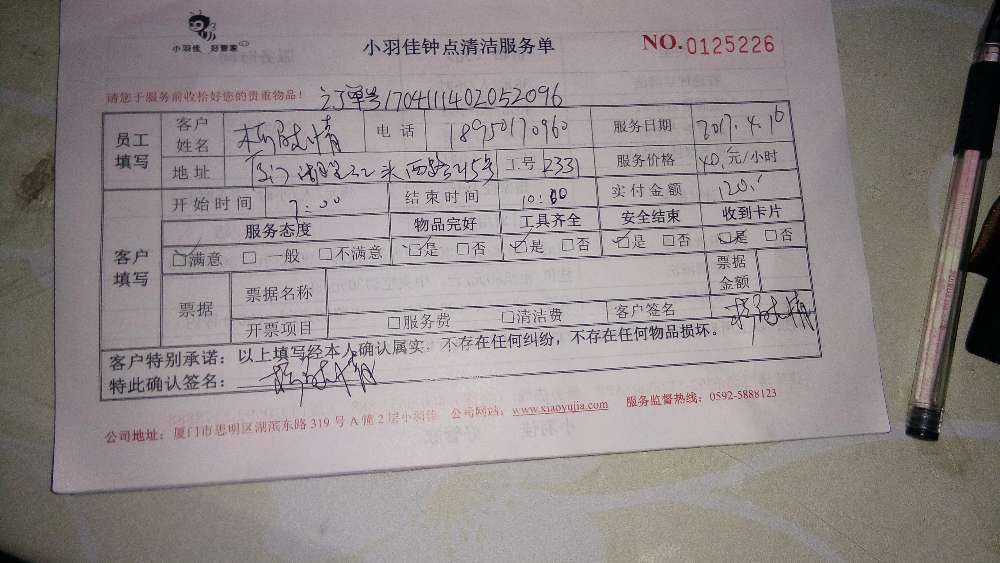 小羽佳 好管家
小羽佳钟点清洁服务单
NO.0125226
请您于服务前收拾好您的贵重物品!
订单号170411140205 2096
员工填写 客户姓名 电话 18950170960 服务日期 2017.4.16
地址 西路215号 工号 12331 服务价格 40.元/小时
开始时间 7:00 结束时间 10:00 实付金额 120.
客户填写 服务态度 物品完好 工具齐全 安全结束 收到卡片
☑满意 □一般 □不满意 ☑是 □否 ☑是 □否 ☑是 □否 ☑是 □否
票据 票据名称 票据金额
开票项目 □服务费 □清洁费 客户签名
客户特别承诺:以上填写经本人确认属实,不存在任何纠纷,不存在任何物品损坏。
特此确认签名:
公司地址:厦门市思明区湖滨东路319号A幢2层小羽佳 公司网站:www.xiaoyujia.com 服务监督热线:0592-5888123